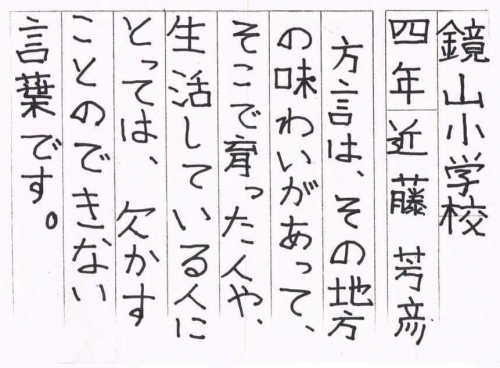 鏡山小学校
四年 近藤 芳彦
方言は、その地方
の味わいがあって、
そこで育った人や、
生活している人に
とっては、欠かす
ことのできない
言葉です。